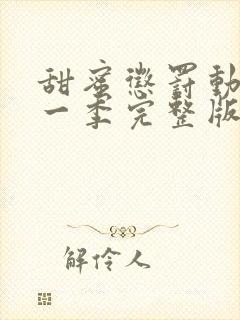 甜蜜懲罰動
一季完整版
解伶人